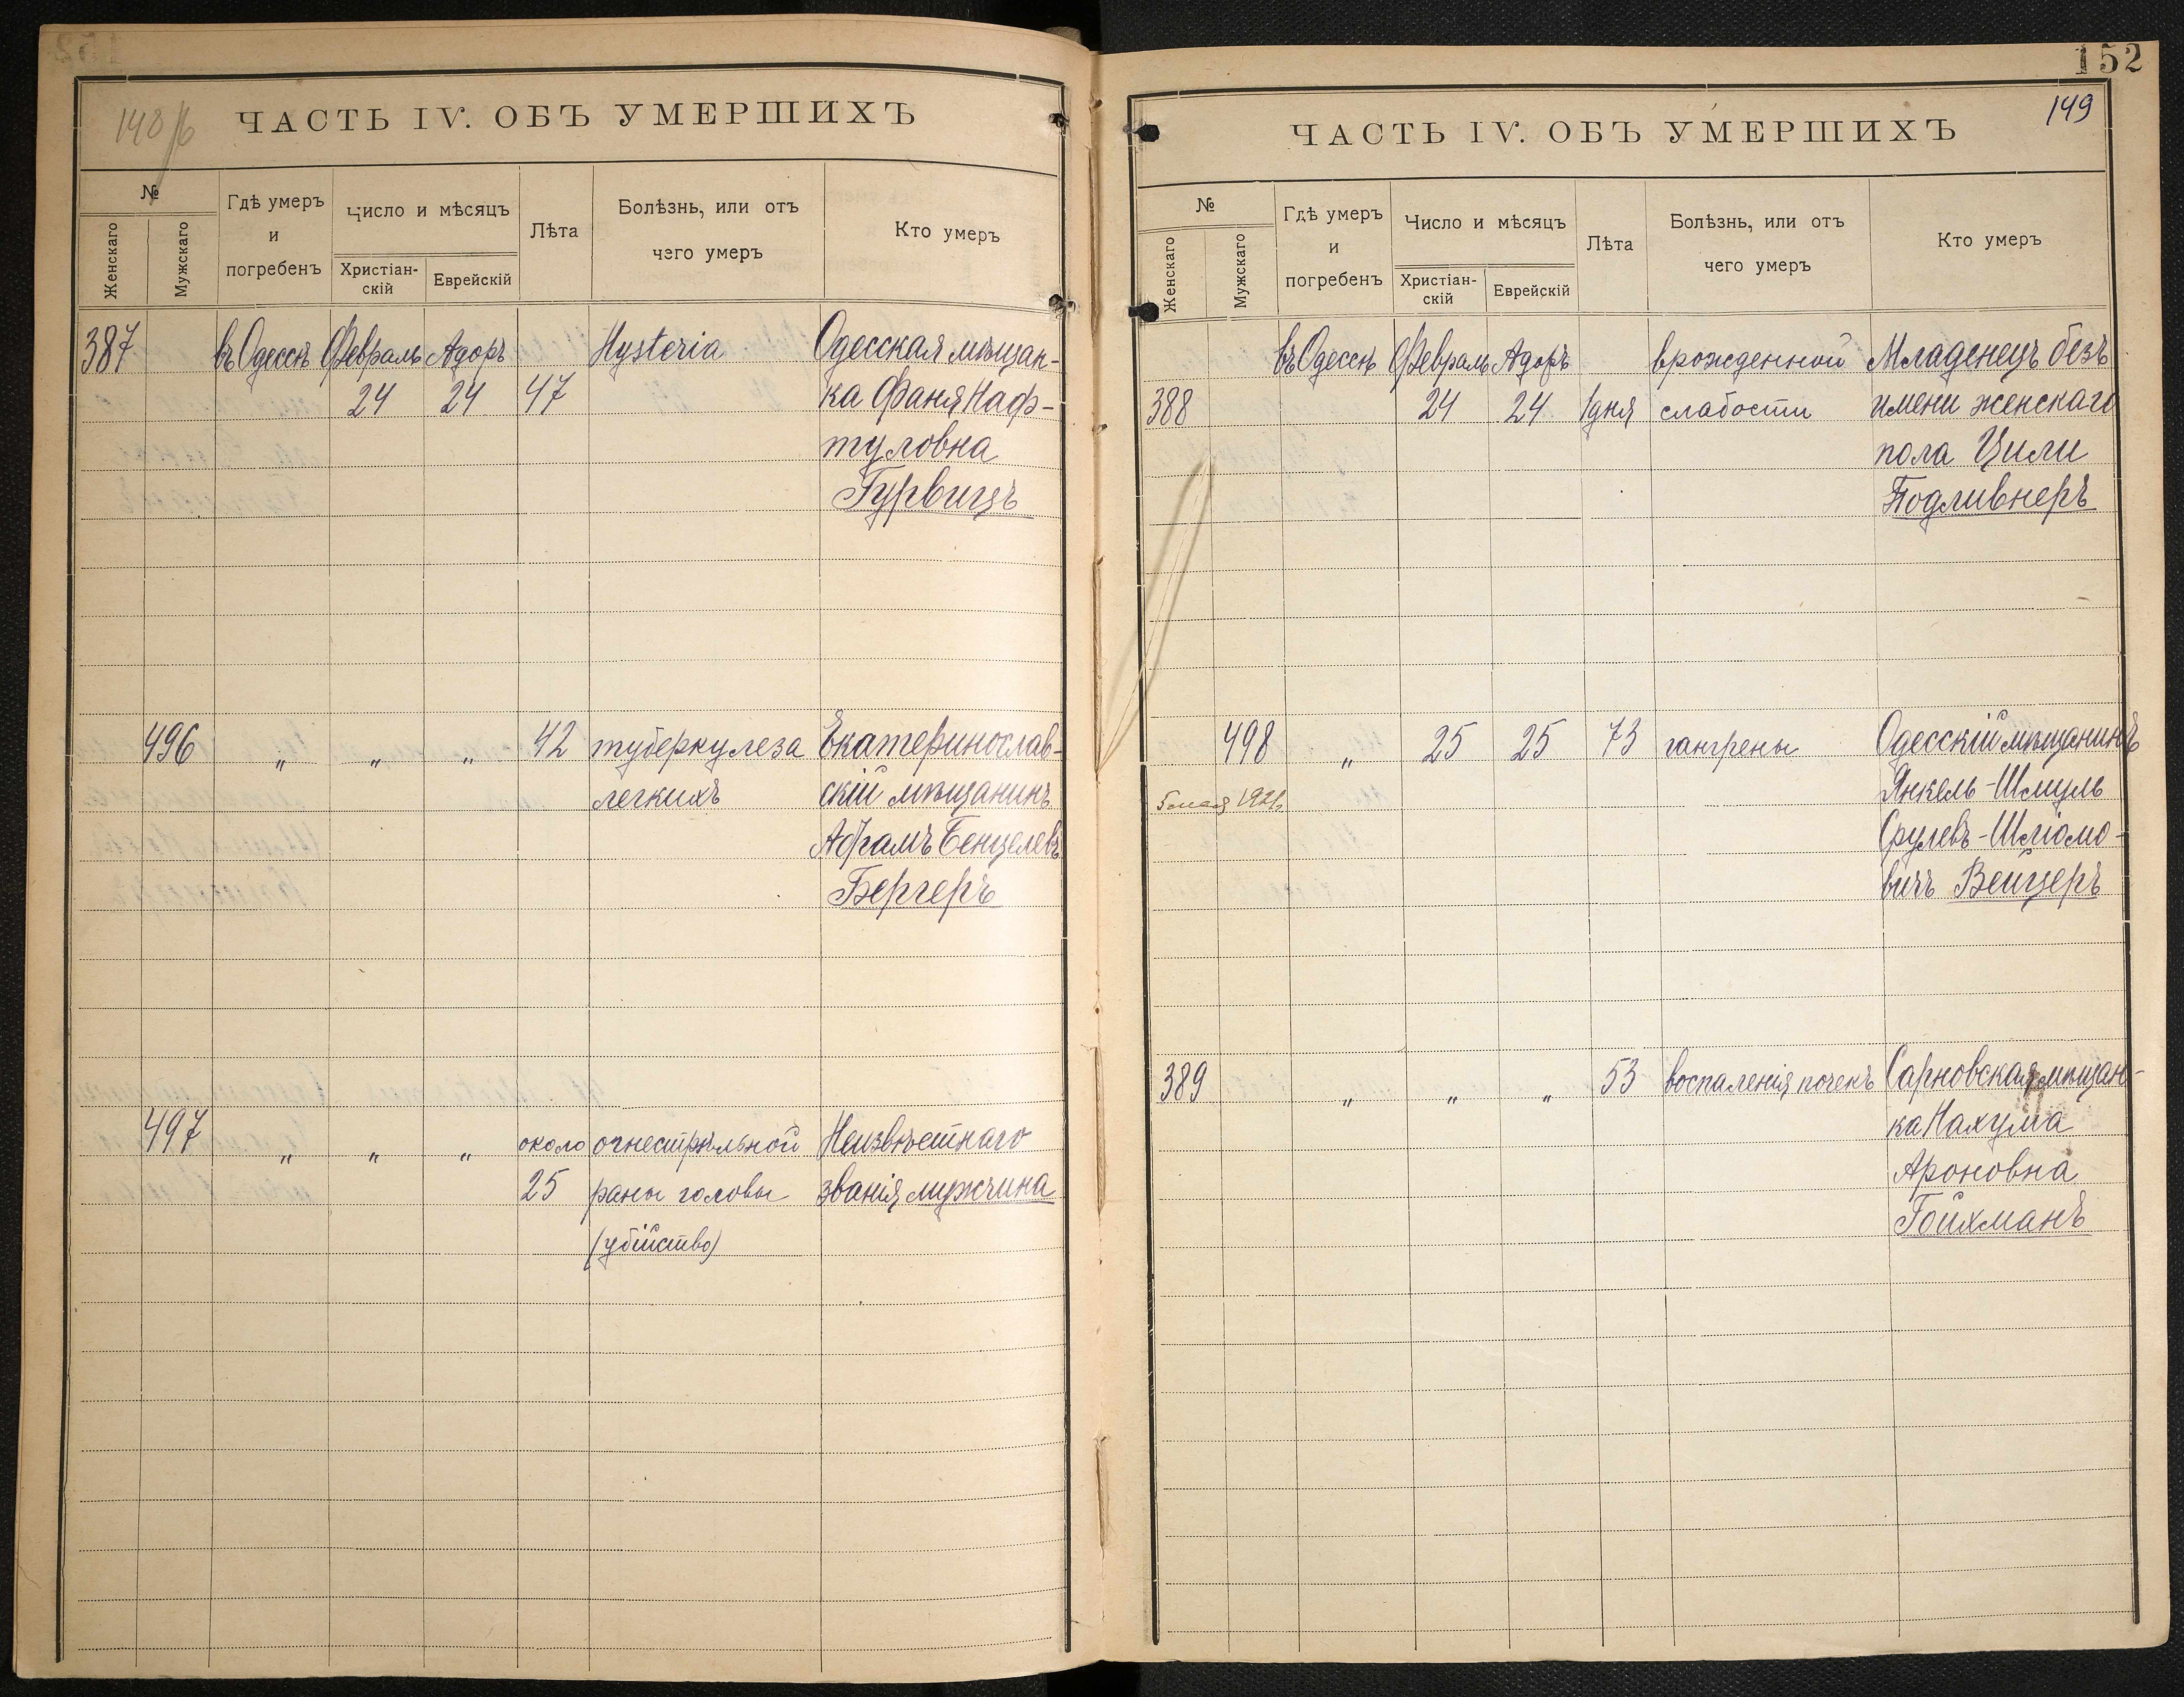 148 об
ЧАСТЬ IV. ОБЪ УМЕРШИХЪ
№
Женскаго
Мужскаго
Гдѣ умеръ
и
погребенъ
Число и мѣсяцъ
Христіан-
скій
Еврейскій
Лѣта
Болѣзнь, или отъ
чего умеръ
Кто умеръ
387 въ Одессѣ Февраль Адоръ Hysteria Одесская мѣщан-
24 24 47 ка Фаня Наф-
туловна
Гурвицъ
496 " " " 42 туберкулеза Екатеринослав-
легкихъ скій мѣщанинъ
Абрамъ Бенцелевъ
Бергеръ
497 " " " около огнестрѣльной Неизвѣстнаго
25 раны головы званія мужчина
(убійство)
152
149
ЧАСТЬ IV. ОБЪ УМЕРШИХЪ
№
Женскаго
Мужскаго
Гдѣ умеръ
и
погребенъ
Число и мѣсяцъ
Христіан-
скій
Еврейскій
Лѣта
Болѣзнь, или отъ
чего умеръ
Кто умеръ
въ Одессѣ Февраль Адоръ врожденной Младенецъ безъ
388 24 24 1 дня слабости имени женскаго
пола Цили
Подливнеръ
498 " 25 25 73 гангрены Одесскій мѣщанинъ
5 мая 1921г. Янкель-Шмуль
Срулевъ-Шліомо-
вичъ Вейцеръ
389 " " " 53 воспаленія почекъ Сарновская мѣщан-
ка Нахума
Ароновна
Гойхманъ